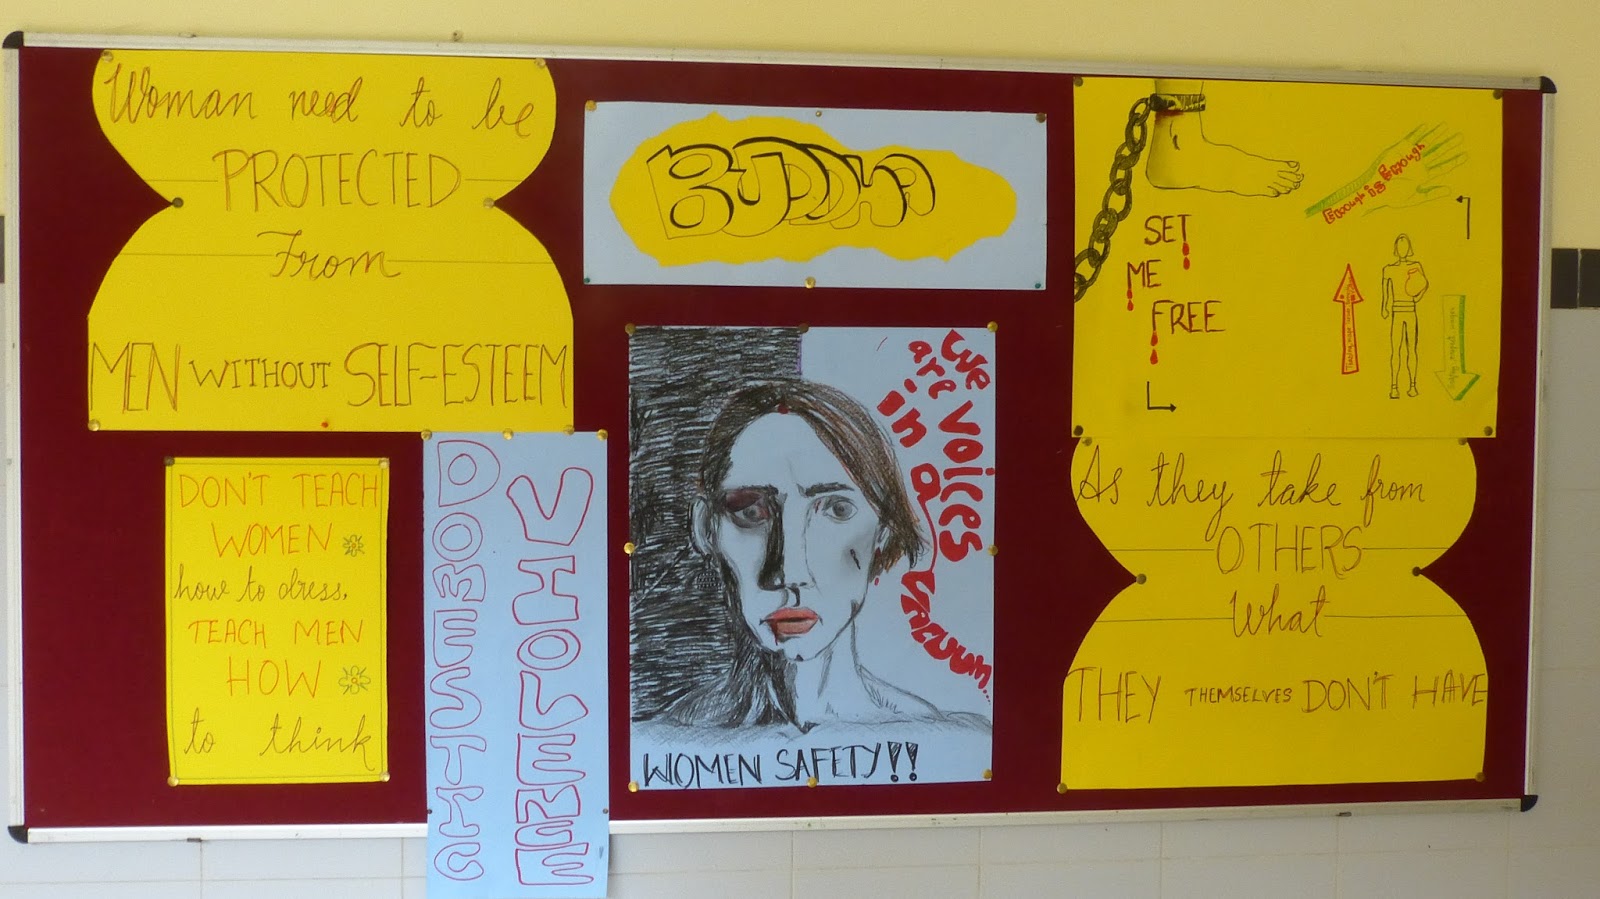 Woman need to be
PROTECTED
From
MEN WITHOUT SELF-ESTEEM
DON'T TEACH
WOMEN
how to dress,
TEACH MEN
HOW
to think
DOMESTIC
VIOLENCE
BUDDHA
We
are voices
in a
vacuum...
WOMEN SAFETY!!
SET
ME
FREE
Enough is Enough
As they take from
OTHERS
What
THEY THEMSELVES DON'T HAVE